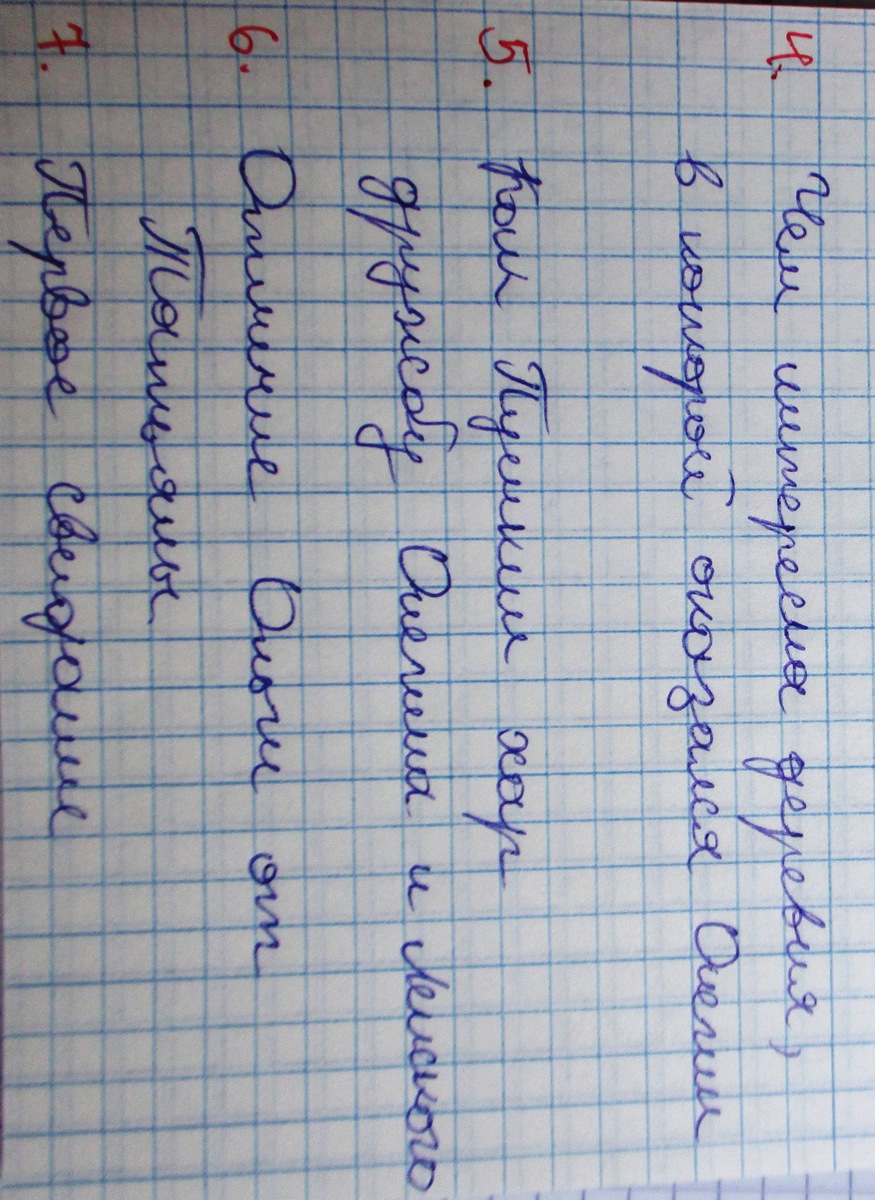 4. Чем интересна деревня,
в которой оказался Онегин
5. Как Пушкин хар
дружбу Онегина и Ленского
6. Отличие Ольги от
Татьяны
7. Первое свидание